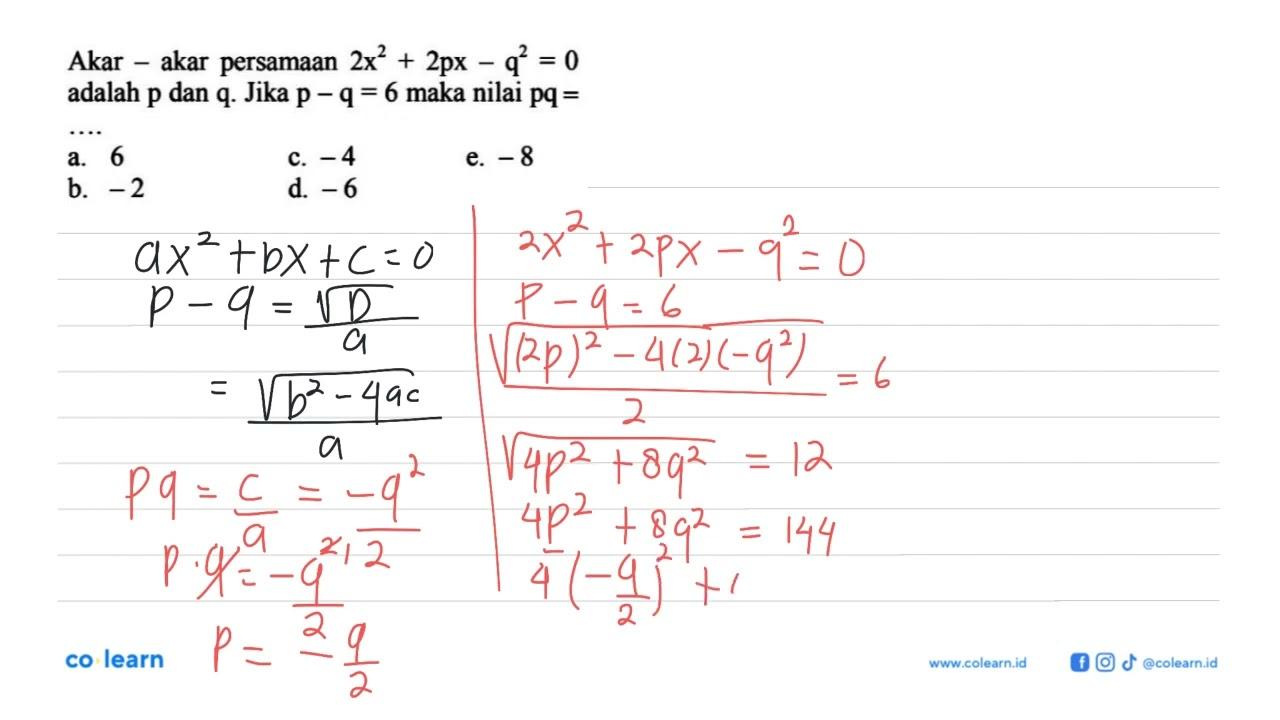 Akar – akar persamaan 2x² + 2px – q² = 0
adalah p dan q. Jika p – q = 6 maka nilai pq =
....
a. 6 c. – 4 e. – 8
b. – 2 d. – 6
ax² + bx + c = 0
p - q = √D / a
= √(b² - 4ac) / a
pq = c/a = -q²/2
p · q = -q²/2
p = -q/2
2x² + 2px - q² = 0
p - q = 6
√((2p)² - 4(2)(-q²)) / 2 = 6
√(4p² + 8q²) = 12
4p² + 8q² = 144
4(-q/2)² +
co·learn
www.colearn.id
@colearn.id